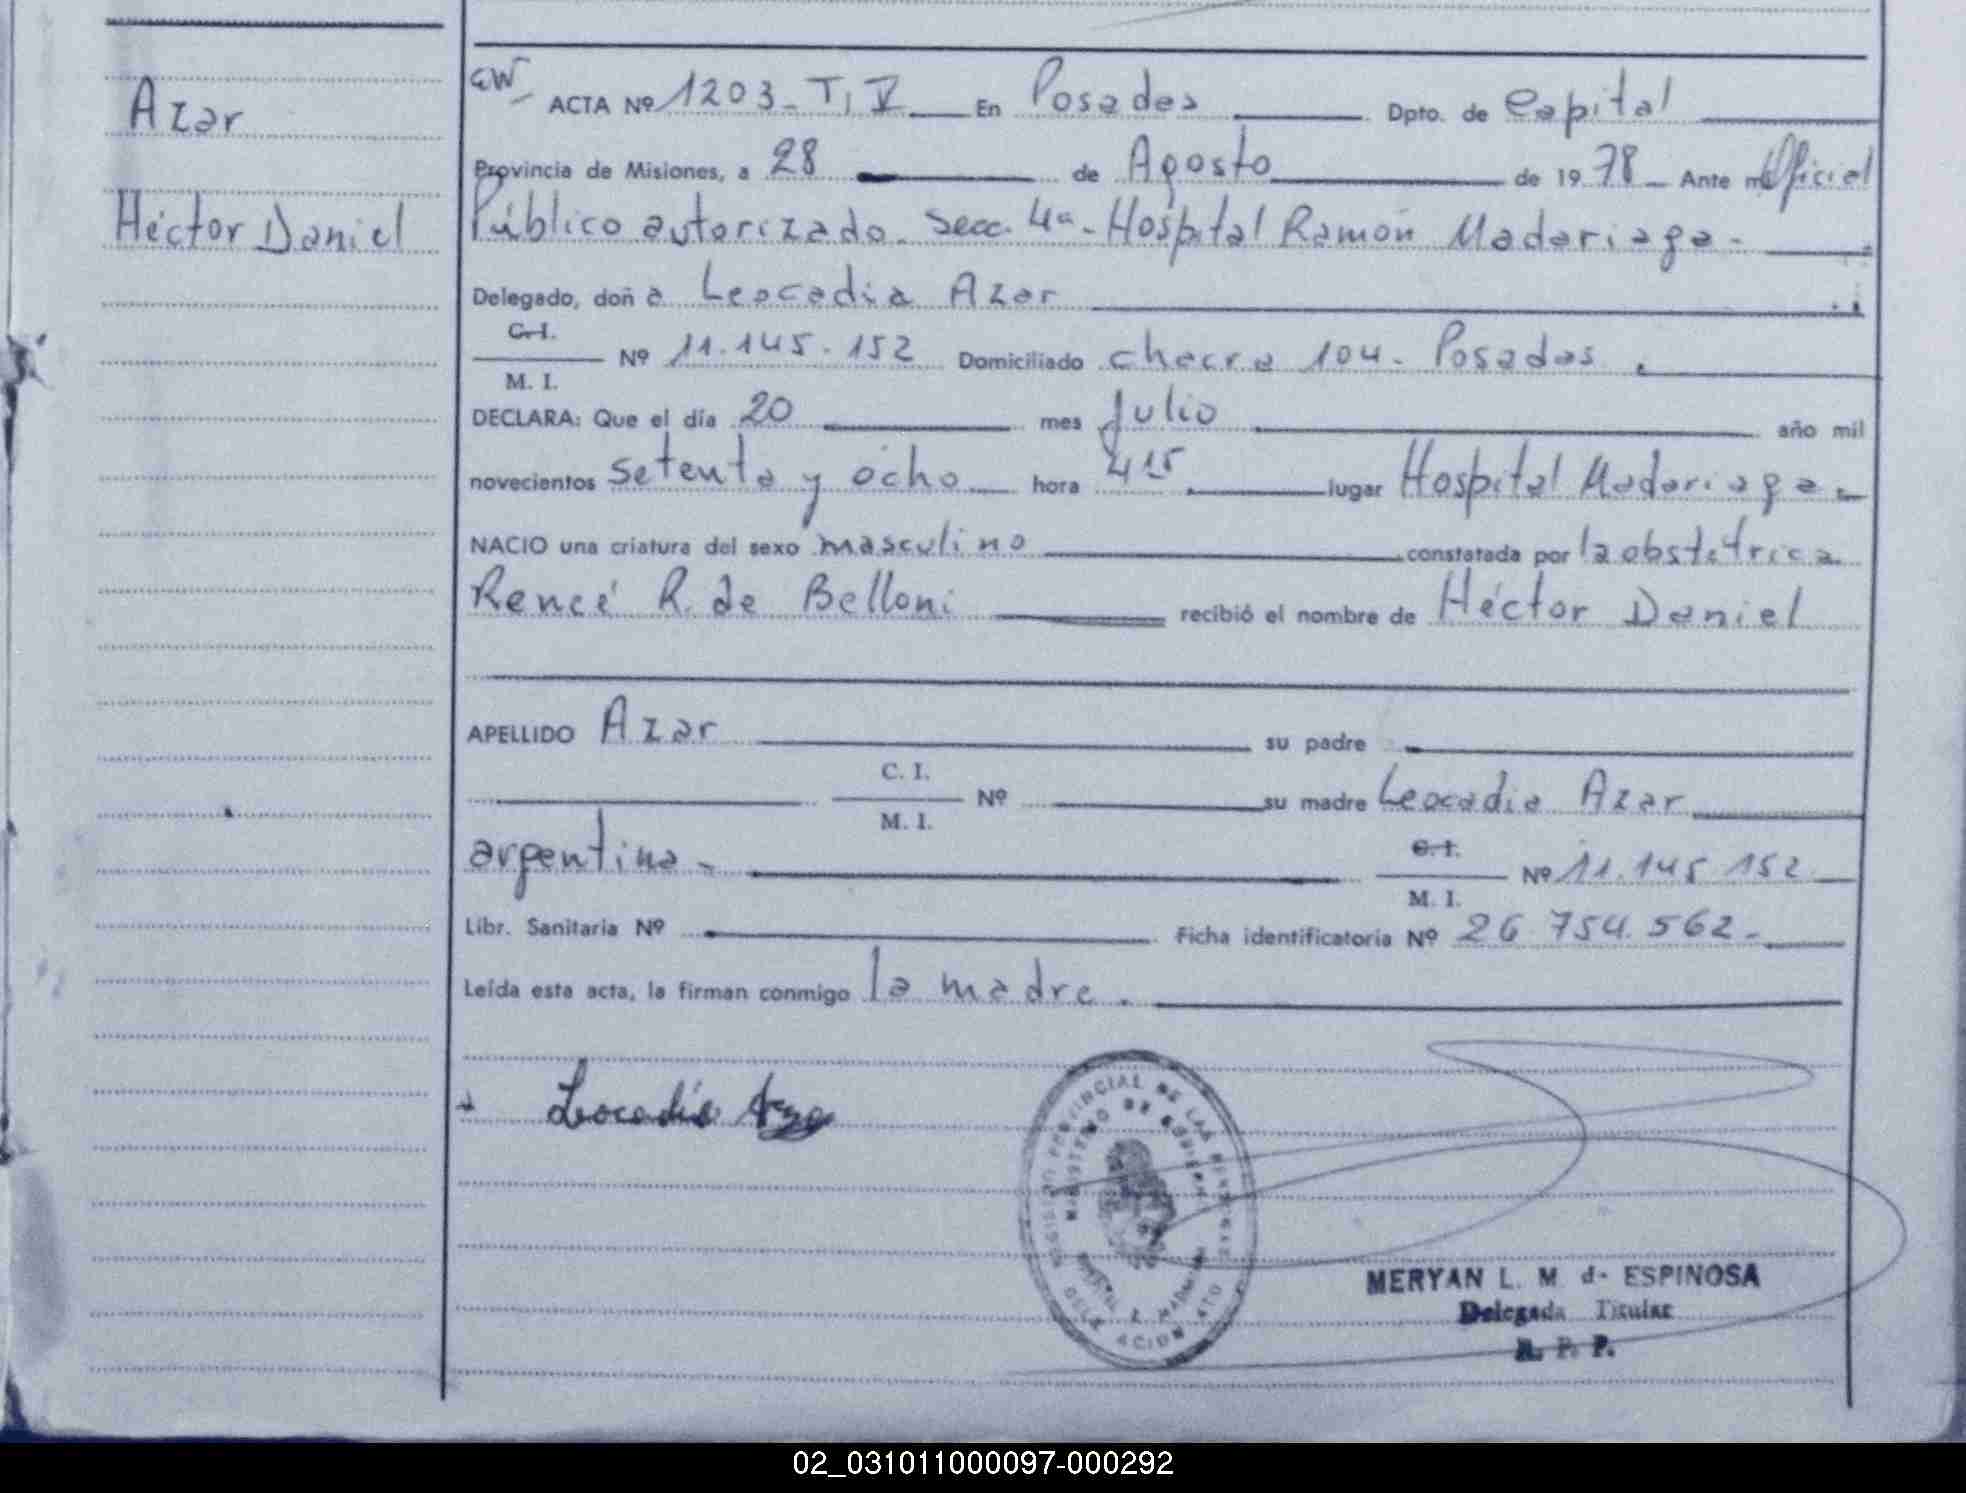 Azar
Héctor Daniel
GW ACTA Nº 1203 - T, V En Posadas Dpto. de Capital
Provincia de Misiones, a 28 de Agosto de 1978 Ante mi Oficial
Público autorizado. Secc. 4a - Hospital Ramón Madariaga -
Delegado, doña Leocadia Azar
C. I.
Nº 11.145.152 Domiciliado chacra 104 - Posadas
M. I.
DECLARA: Que el día 20 mes Julio año mil
novecientos setenta y ocho hora 415 lugar Hospital Madariaga
NACIO una criatura del sexo masculino constatada por la obstétrica
Reneé R. de Belloni recibió el nombre de Héctor Daniel
APELLIDO Azar su padre
C. I.
Nº su madre Leocadia Azar
M. I.
argentina -
C. I.
Nº 11.145.152
M. I.
Libr. Sanitaria Nº Ficha identificatoria Nº 26.754.562 -
Leída esta acta, la firman conmigo la madre .
Leocadia Azar
REGISTRO PROVINCIAL DE LAS PERSONAS
MINISTERIO DE GOBIERNO
DELEGACION
MERYAN L. M. de ESPINOSA
Delegada Titular
R. P. P.
02_031011000097-000292